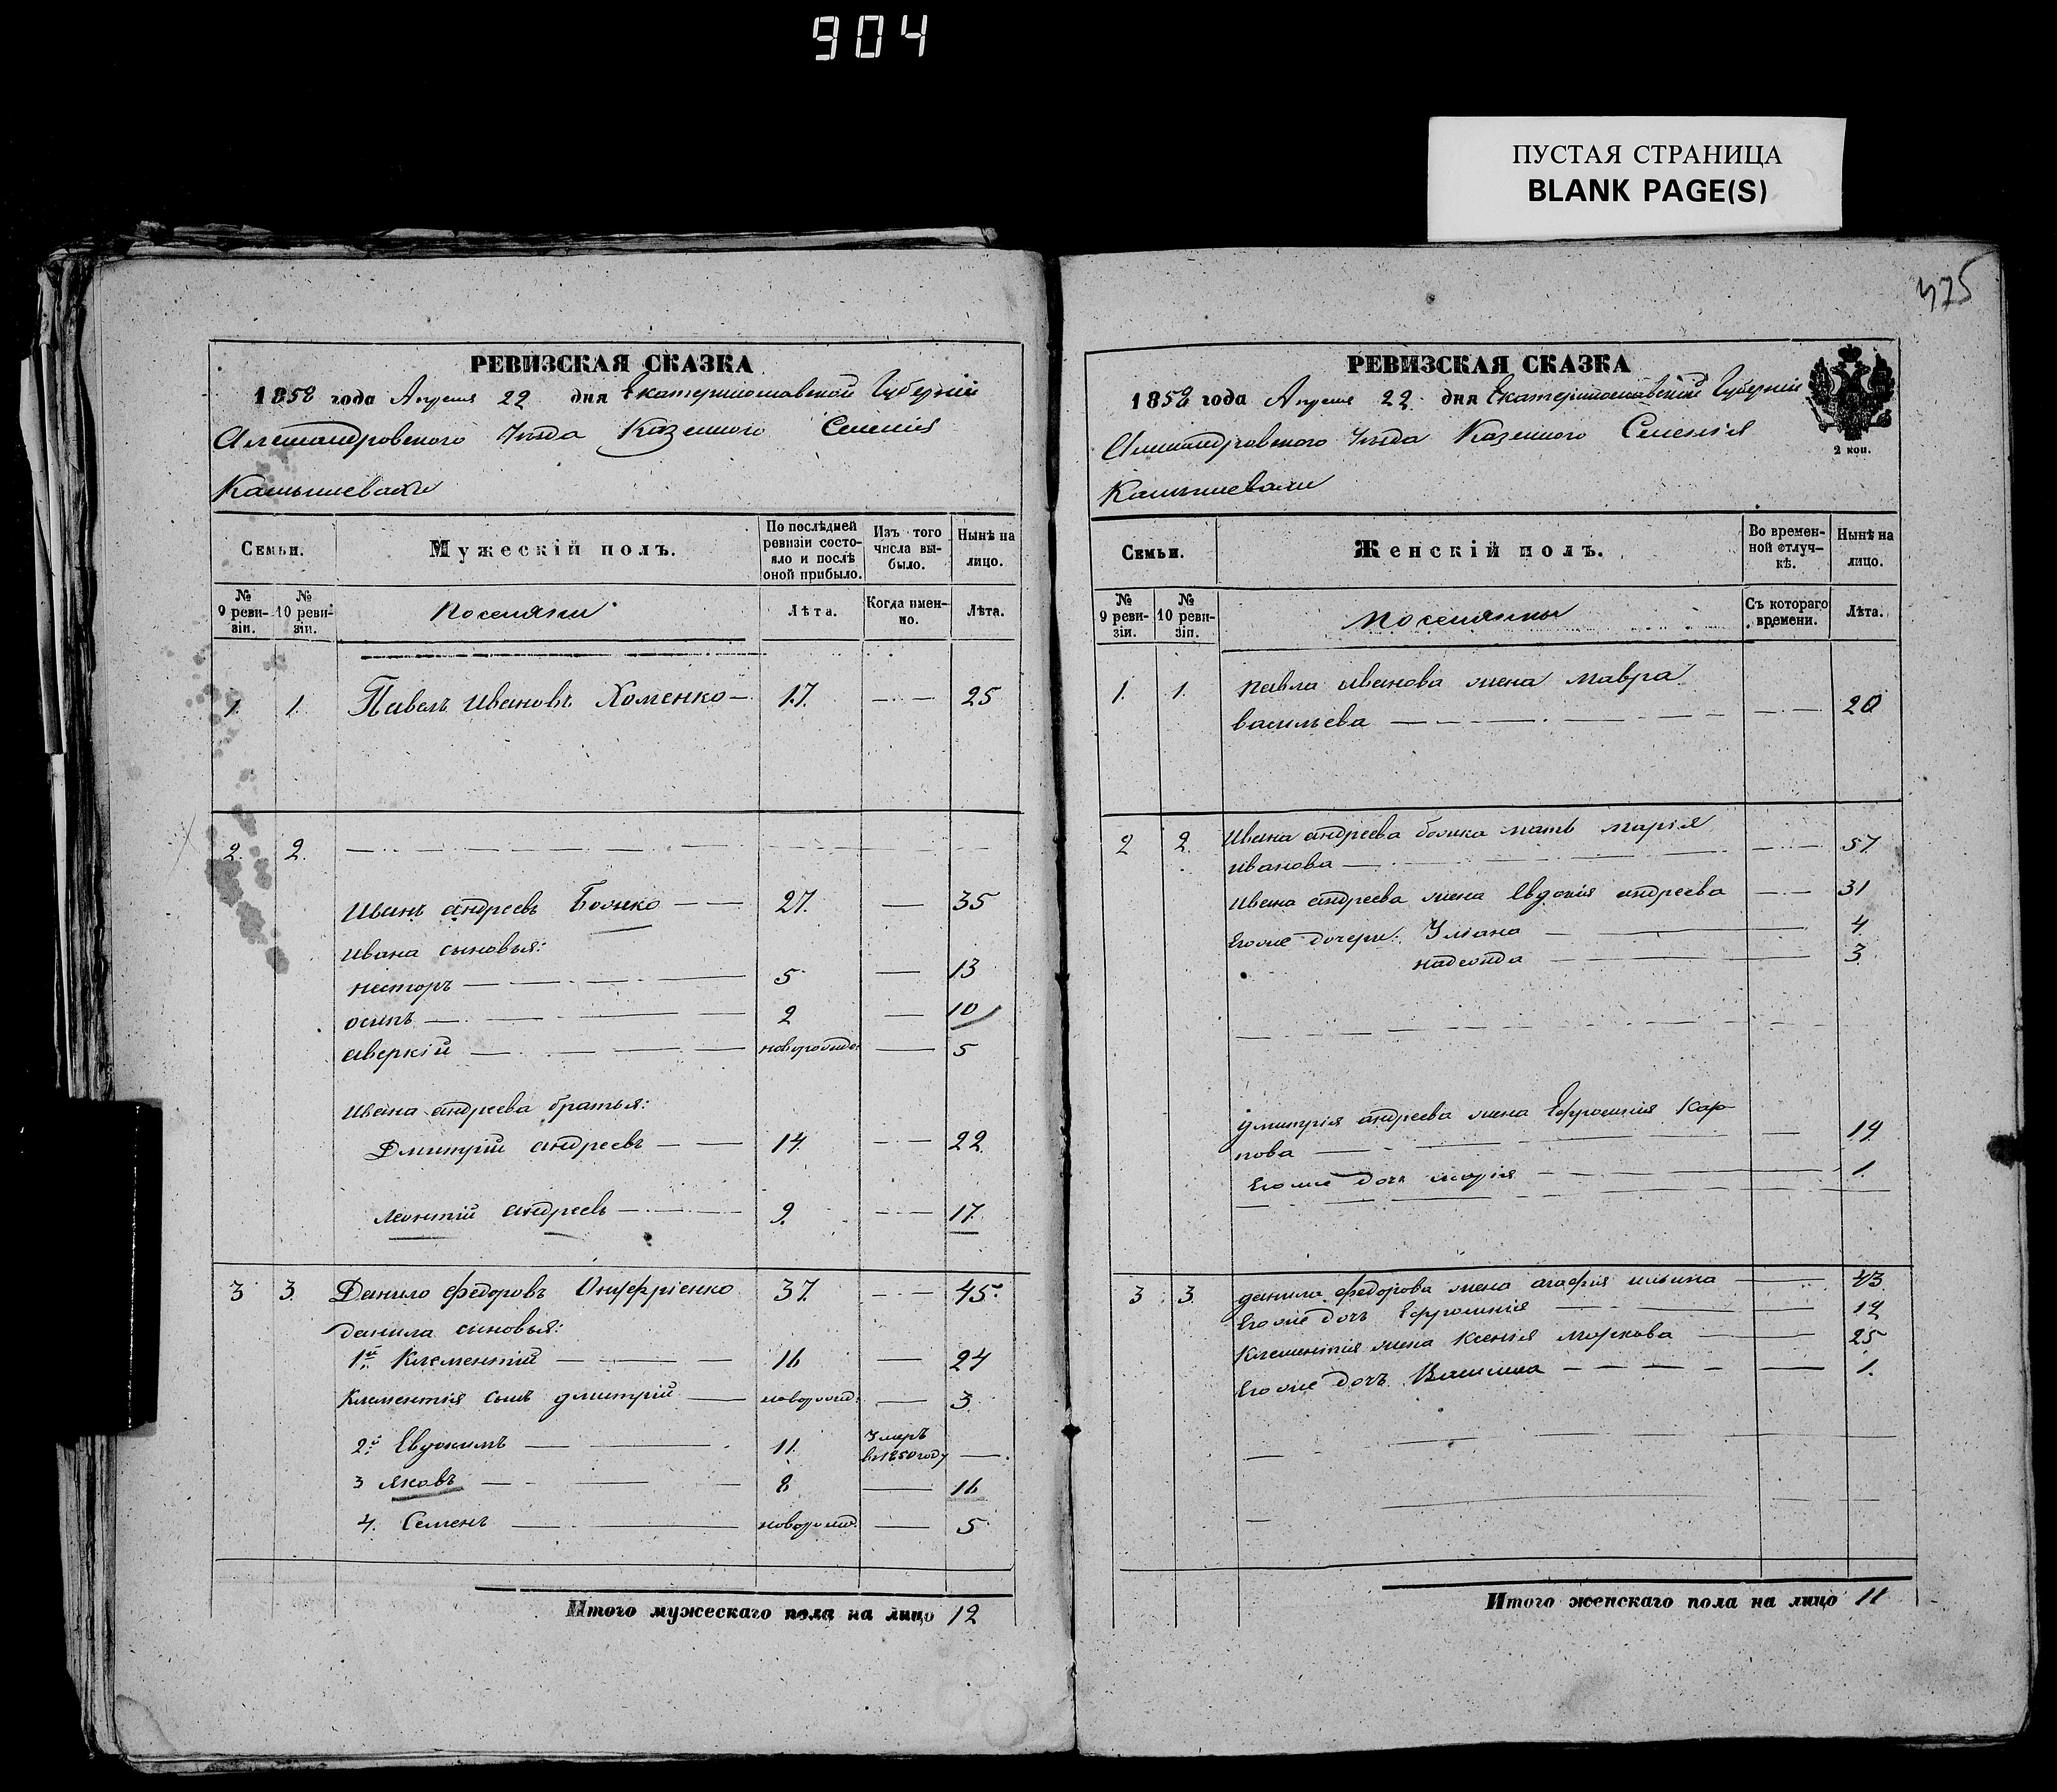 904
ПУСТАЯ СТРАНИЦА
BLANK PAGE(S)
475
РЕВИЗСКАЯ СКАЗКА
1858 года Апреля 22 дня Екатеринославской Губерніи
Александровского Уезда Казенного Селенія
Камышевахи
Семьи.
Мужескій полъ.
По послѣдней ревизіи состояло и послѣ оной прибыло.
Изъ того числа выбыло.
Нынѣ на лицо.
№ 9 ревизіи.
№ 10 ревизіи.
Поселяни
Лѣта.
Когда именно.
Лѣта.
1. 1. Павелъ Ивановъ Хоменко 17. 25
2. 2.
Иванъ Андреевъ Бойко 27. 35
Ивана сыновья:
Несторъ 5 13
Осипъ 2 10
Аверкій новорожде: 5
Ивана Андреева братья:
Дмитрій Андреевъ 14. 22.
Леонтій Андреевъ 9. 17.
3 3. Данило Федоровъ Онуфріенко 37. 45.
Данила сыновья:
1й Клементій 16 24
Клементія сынъ Дмитрій новорожд: 3.
2й Евдокимъ 11. Умеръ
въ 1850 году
3 Яковъ 8 16
4. Семенъ новорожд. 5
Итого мужескаго пола на лицо 12
РЕВИЗСКАЯ СКАЗКА
1858 года Апреля 22 дня Екатеринославской Губерніи
Александровского Уезда Казенного Селенія
Камышевахи
2 коп.
Семьи.
Женскій полъ.
Во временной отлучкѣ.
Нынѣ на лицо.
№ 9 ревизіи.
№ 10 ревизіи.
Поселянны
Съ котораго времени.
Лѣта.
1. 1. Павла Иванова жена Мавра
Васильева 20
2 2. Ивана Андреева Бойка мать Марія
Иванова 57
Ивана Андреева жена Евдокія Андреева 31
Его же дочери: Уліана 4.
Надежда 3.
Дмитрія Андреева жена Ефросинія Кар-
пова 19
Его же дочь Марія 1.
3 3. Данила Федорова жена Агафія Ильина 43
Его же дочь Ефросинія 12
Клементія жена Ксенія Маркова 25
Его же дочь 1.
Итого женскаго пола на лицо 11